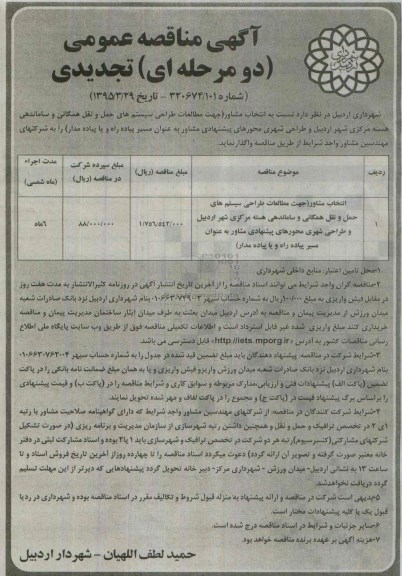 آگهی مناقصه عمومی
(دو مرحله ای) تجدیدی
(شماره ۳۲۰۶۷۴/۱۰۱ - تاریخ ۱۳۹۵/۳/۲۹)
شهرداری اردبیل در نظر دارد نسبت به انتخاب مشاور(جهت مطالعات طراحی سیستم های حمل و نقل همگانی و ساماندهی
هسته مرکزی شهر اردبیل و طراحی شهری محورهای پیشنهادی مشاور به عنوان مسیر پیاده راه و یا پیاده مدار) را به شرکتهای
مهندسین مشاور واجد شرایط از طریق مناقصه واگذار نماید.
ردیف موضوع مناقصه مبلغ مناقصه (ریال) مبلغ سپرده شرکت در مناقصه (ریال) مدت اجراء (ماه شمسی)
انتخاب مشاور(جهت مطالعات طراحی سیستم های
حمل و نقل همگانی و ساماندهی هسته مرکزی شهر اردبیل
۱ و طراحی شهری محورهای پیشنهادی مشاور به عنوان ۱/۷۵۶/۵۴۲/۰۰۰ ۸۸/۰۰۰/۰۰۰ ۶ماه
مسیر پیاده راه و یا پیاده مدار)
۱-محل تامین اعتبار: منابع داخلی شهرداری
۲-مناقصه گران واجد شرایط می توانند اسناد مناقصه را از آخرین تاریخ انتشار آگهی در روزنامه کثیرالانتشار به مدت هفت روز
در مقابل فیش واریزی به مبلغ ریال به شماره حساب سپهر بنام شهرداری اردبیل نزد بانک صادرات شعبه
میدان ورزش از مدیریت پیمان و مناقصه به آدرس اردبیل میدان بعثت به طرف میدان ایثار ساختمان مدیریت پیمان و مناقصه
خریداری کنند مبلغ واریزی شده غیر قابل استرداد است و اطلاعات تکمیلی مناقصه فوق از طریق وب سایت پایگاه ملی اطلاع
رسانی مناقصات کشور به آدرس «http://iets.mporg.ir» قابل دسترسی می باشد.
۳-شرایط شرکت در مناقصه: پیشنهاد دهندگان باید مبلغ تضمین قید شده در جدول را به شماره حساب سپهر
بنام شهرداری اردبیل نزد بانک صادرات شعبه میدان ورزش واریز و فیش واریزی و یا به همان مبلغ ضمانت نامه بانکی را در پاکت
تضمین (پاکت الف) پیشنهادات فنی و ارزیابی، مدارک مربوطه و سوابق کاری و شرایط مناقصه را در (پاکت ب) و قیمت پیشنهادی
را بر اساس برگ پیشنهاد قیمت در (پاکت ج) و مجموع را در پاکت لفاف و مهر شده تحویل نمایند.
۴-شرایط شرکت کنندگان در مناقصه: از شرکتهای مهندسین مشاور واجد شرایط که دارای گواهینامه صلاحیت مشاور با رتبه
۱ی ۲ در تخصص ترافیک و حمل و نقل و همچنین داشتن رتبه شهرسازی از سازمان مدیریت و برنامه ریزی (در صورت تشکیل
شرکتهای مشارکتی(کنسرسیوم) رتبه هر دو شرکت در تخصص ترافیک و شهرسازی باید ۱ یا ۲ بوده و اسناد مشارکت ثبتی در دفتر
خانه معتبر صورت گرفته و تصویر آن ارائه گردد) دعوت میگردد اسناد مناقصه را تا چهارده روز از آخرین تاریخ فروش اسناد و تا
ساعت ۱۳ به نشانی اردبیل- میدان ورزش - شهرداری مرکز- دبیر خانه تحویل گردد پیشنهادهایی که دیرتر از این مهلت تسلیم
گردد دریافت نخواهدشد.
۵-بدیهی است شرکت در مناقصه و ارائه پیشنهاد به منزله قبول شروط و تکالیف مقرر در اسناد مناقصه بوده و شهرداری در رد یا
قبول یک یا کلیه پیشنهادات مختار است.
۶-سایر جزئیات و شرایط در اسناد مناقصه درج شده است.
۷-هزینه آگهی بر عهده برنده مناقصه خواهد بود.
حمید لطف اللهیان - شهردار اردبیل